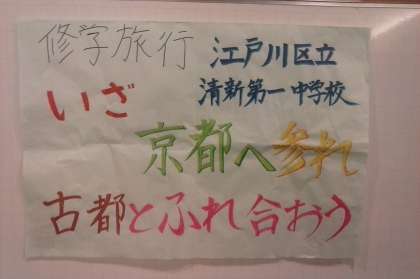 修学旅行
江戸川区立
清新第一中学校
いざ
京都へ参れ
古都とふれ合おう